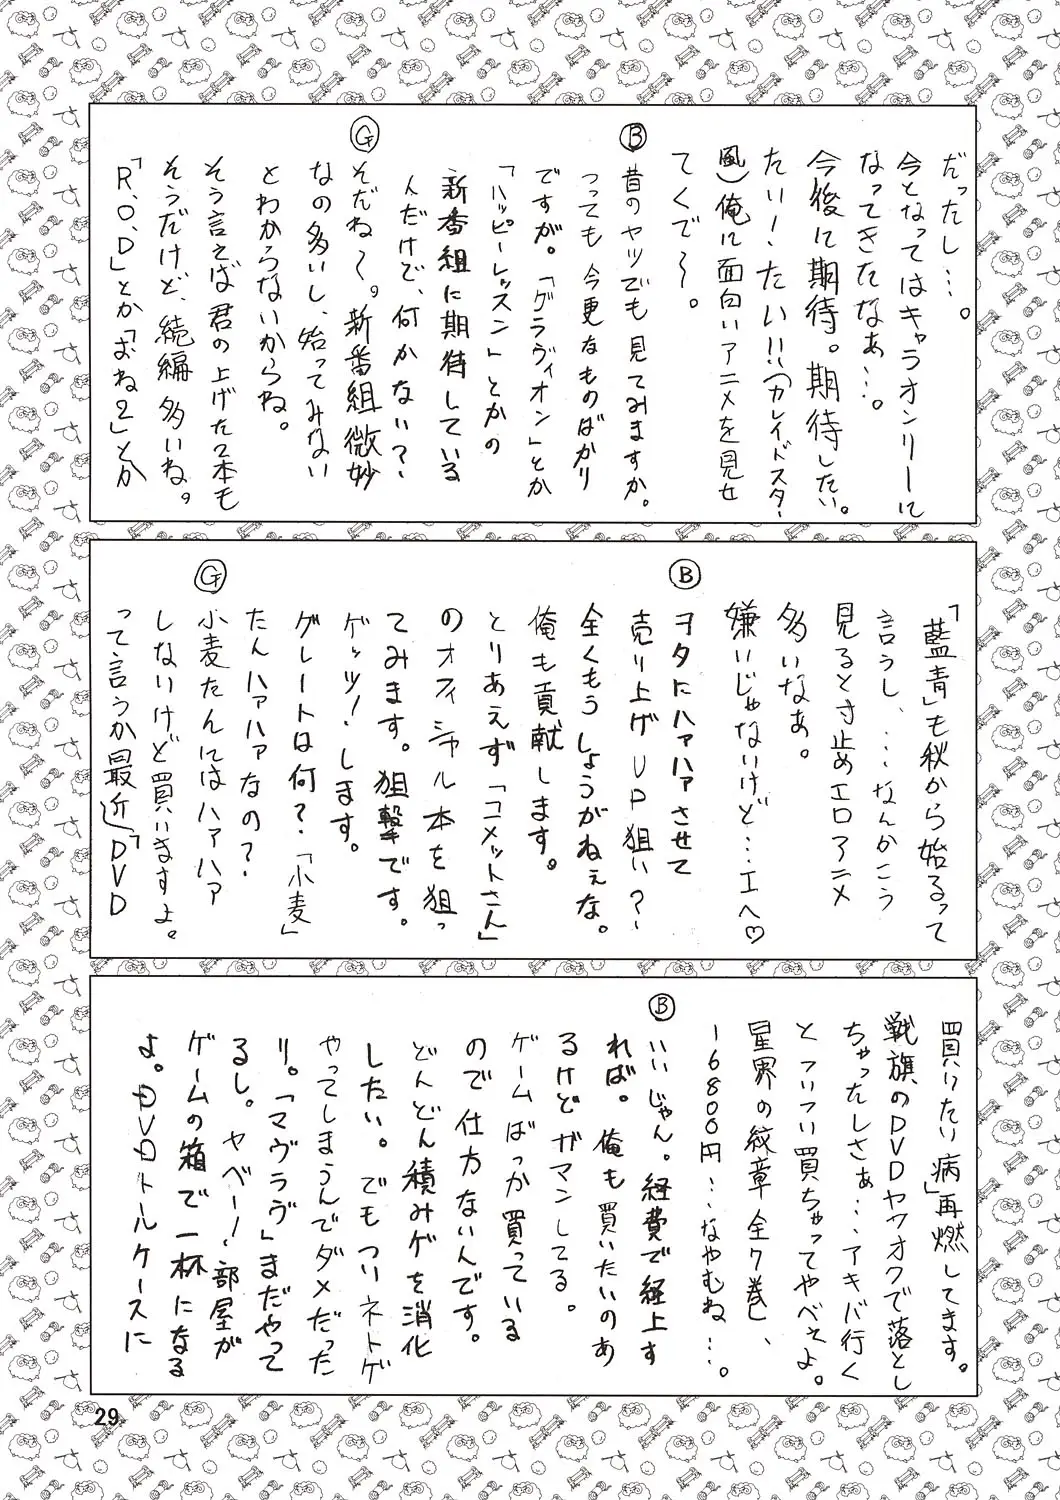 だったし…。
今となってはキャラオンリーに
なってきたなぁ…。
今後に期待。期待したい。
たい！たい!!(カレイドスター
風)俺に面白いアニメを見せ
てくで〜。
Ⓑ 昔のヤツでも見てみますか。
つっても今更なものばかり
ですが。「グラヴィオン」とか
「ハッピーレッスン」とかの
新番組に期待している
んだけで、何かない？
Ⓖ そだね〜。新番組微妙
なの多いし、始ってみない
とわからないからね。
そう言えば君の上げた2本も
そうだけど、続編多いね。
「R.O.D」とか「おね2」とか
「藍青」も秋から始るって
言うし、…なんかこう
見ると寸止めエロアニメ
多いなあ。
嫌いじゃないけど…エヘ♡
Ⓑ ヲタにハァハァさせて
売り上げUP狙い？
全くもうしょうがねぇな。
俺も貢献します。
とりあえず「コメットさん」
のオフィシャル本を狙っ
てみます。狙撃です。
ゲッツ！します。
グレートは何？「小麦」
たんハァハァなの？
Ⓖ 小麦たんにはハァハァ
しないけど買いますよ。
って言うか最近「DVD
買いたい病」再燃してます。
戦旗のDVDヤフオクで落とし
ちゃったしさぁ…アキバ行く
とついつい買ちゃってやべぇよ。
星界の紋章全7巻し、
16800円…なやむね…。
Ⓑ いいじゃん。経費で経上す
れば。俺も買いたいのあ
るけどガマンしてる。
ゲームばっか買っている
ので仕方ないんです。
どんどん積みゲを消化
したい。でもついネトゲ
やってしまうんでダメだった
り。「マヴラヴ」まだやって
るし。ヤベー！部屋が
ゲームの箱で一杯になる
よ。DVDトールケースに
29.